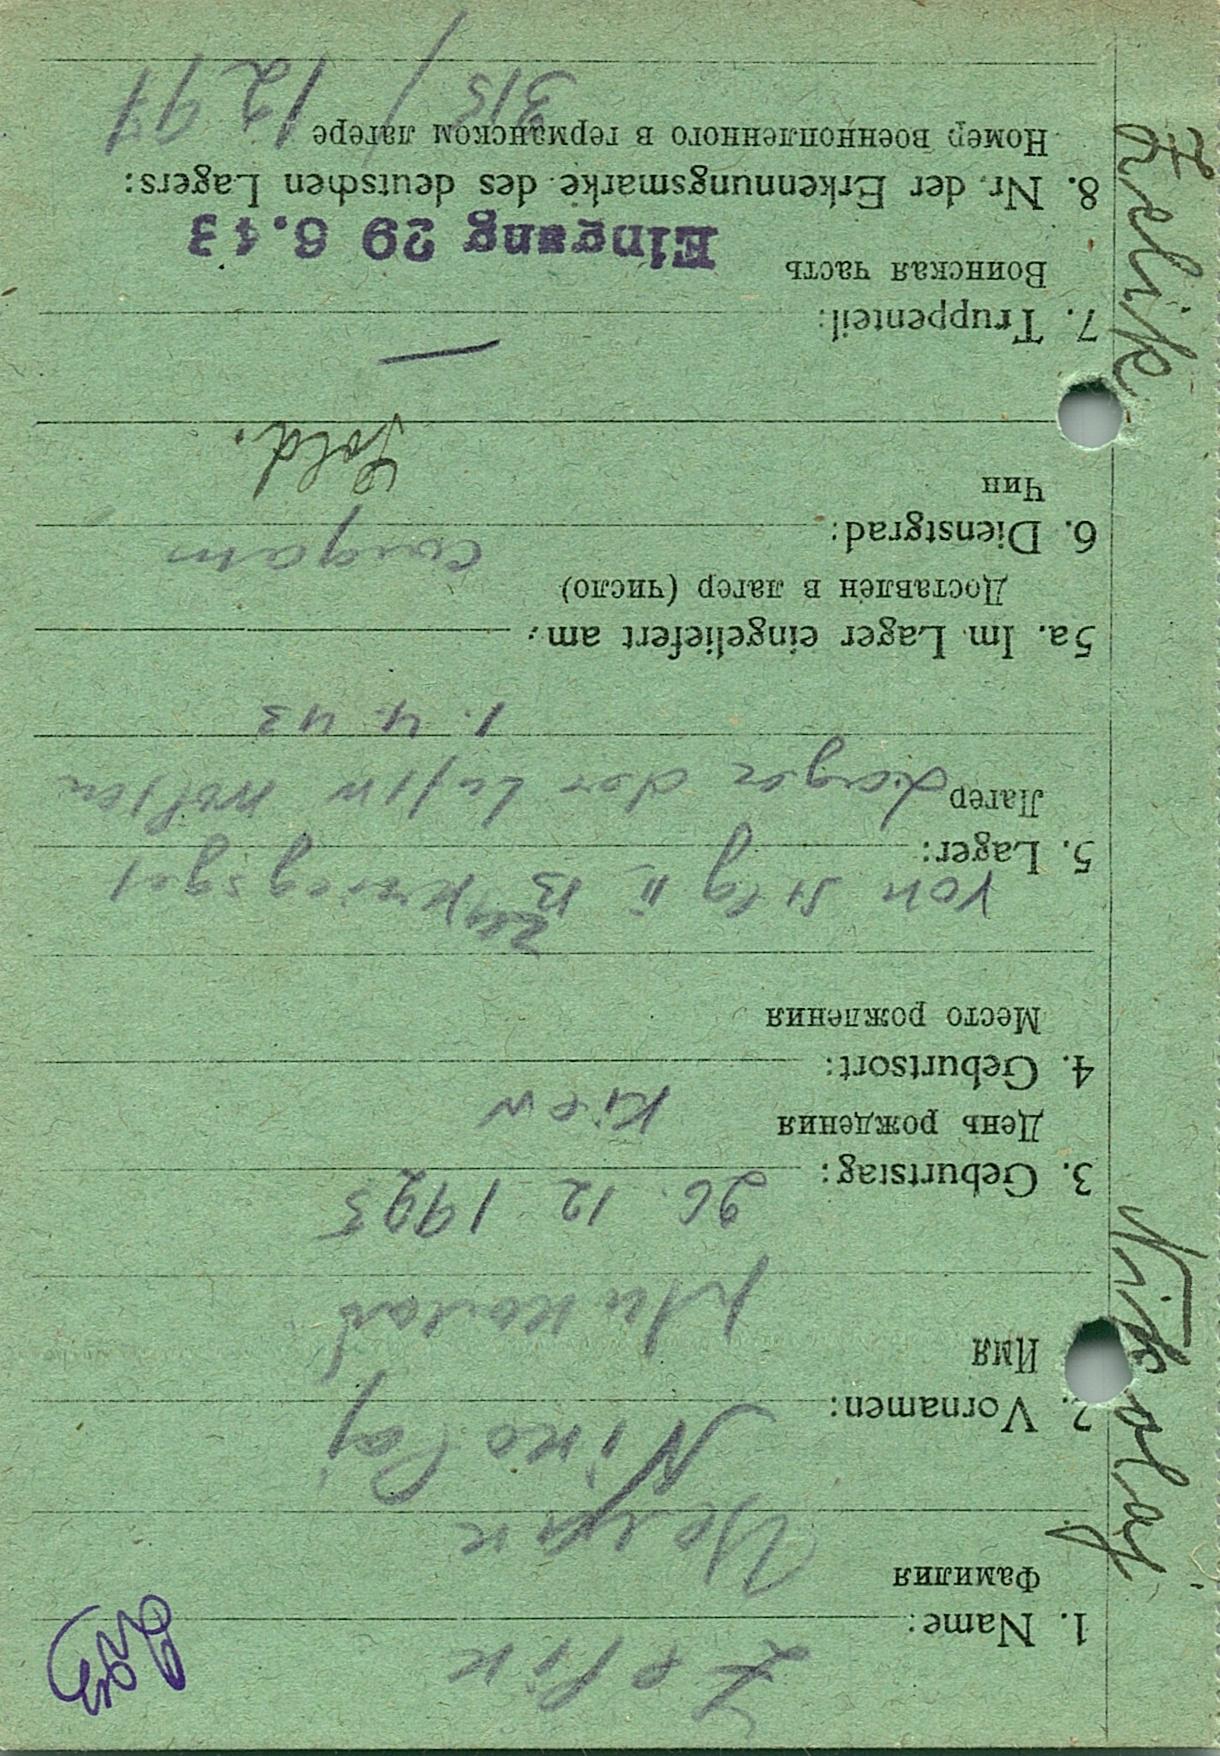 1. Name: Zelik
Фамилия
2. Vornamen: Nikolaj
Имя
Николай
3. Geburtstag: 26. 12 1923
День рождения
4. Geburtsort: Kiew
Место рождения
von Stlg II B zu Kriegsgef
5. Lager:
Лагер Lager der Lufw Wolfen
1. 4. 43
5a. Im Lager eingeliefert am:
Доставлен в лагер (число)
6. Dienstgrad: солдат
Чин
Sold.
7. Truppenteil: —
Воинская часть
Eingang 29 6.43
8. Nr. der Erkennungsmarke des deutschen Lagers:
Номер военнопленного в германском лагере
315 / 1297
Zelik Nikolaj